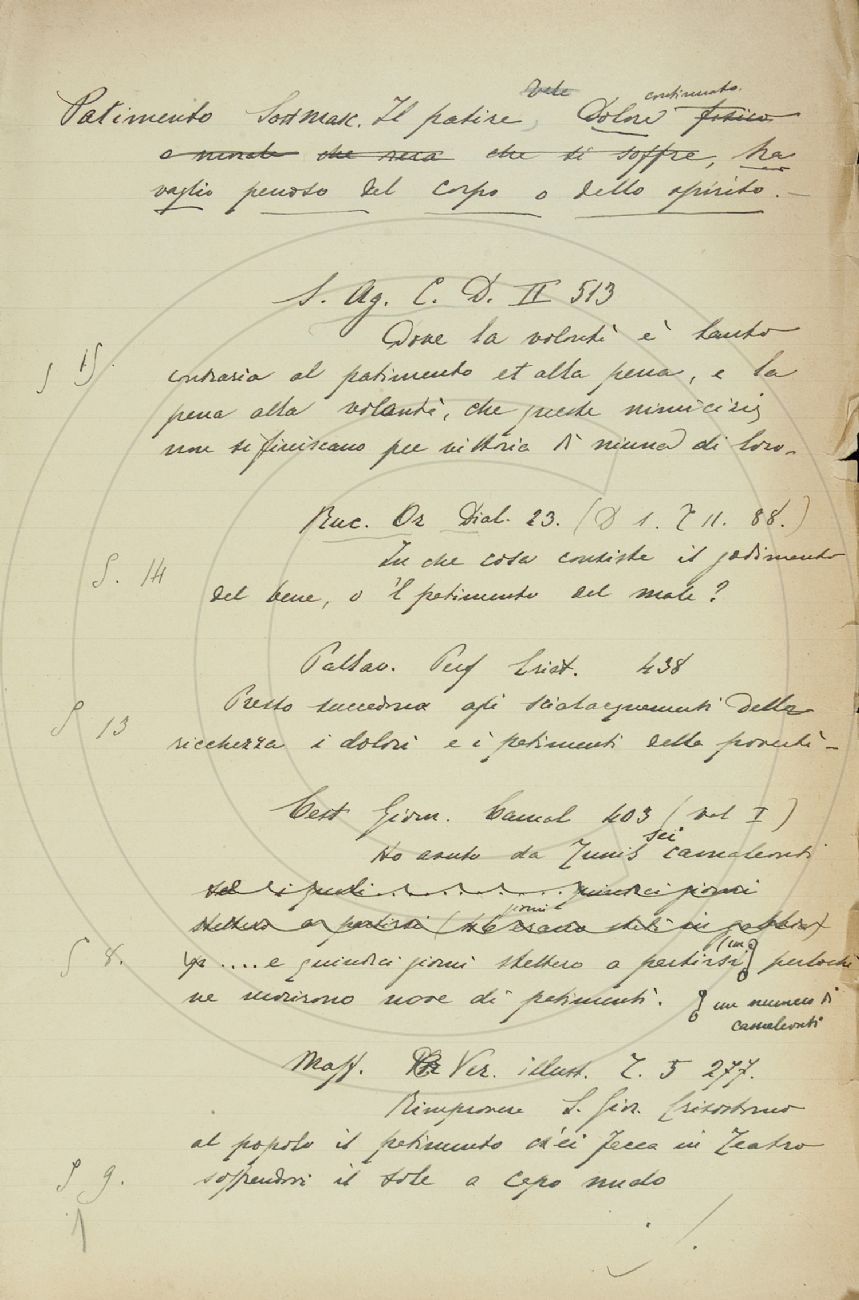 continuato.
Patimento Sost Masc. Il patire, Dolore fisico
o morale che reca che si soffre, tra
vaglio penoso del corpo o dello spirito. —
S. Ag. C. D. II 513
Dove la volontà è tanto
§ 15.
contraria al patimento et alla pena, e la
pena alla volontà, che queste nimicizie
non si finiscano per vittoria di niuna di loro.
Buc. Or Dial. 23. (D 1. T 11. 88.)
In che cosa consiste il godimento
§. 14
del bene, o 'l patimento del male?
Pallav. Perf Crist. 438
Presto succedono agli scialacquamenti della
§ 13
ricchezza i dolori e i patimenti della povertà —
Cest Giorn. Camal 403 (vol I)
sei
Ho avuto da Tunis camaleonti
quindici giorni
stettero a partirsi
§ 8.
.... e quindici giorni stettero a partirsi perlochè
ne morirono nove di patimenti.
un numero di
camaleonti
Maff. Ver. illust. T. 5 277.
Rimprovera S. Gio. Crisostomo
al popolo il patimento ch'ei facea in Teatro
§ 9.
soffrendovi il sole a capo nudo
1